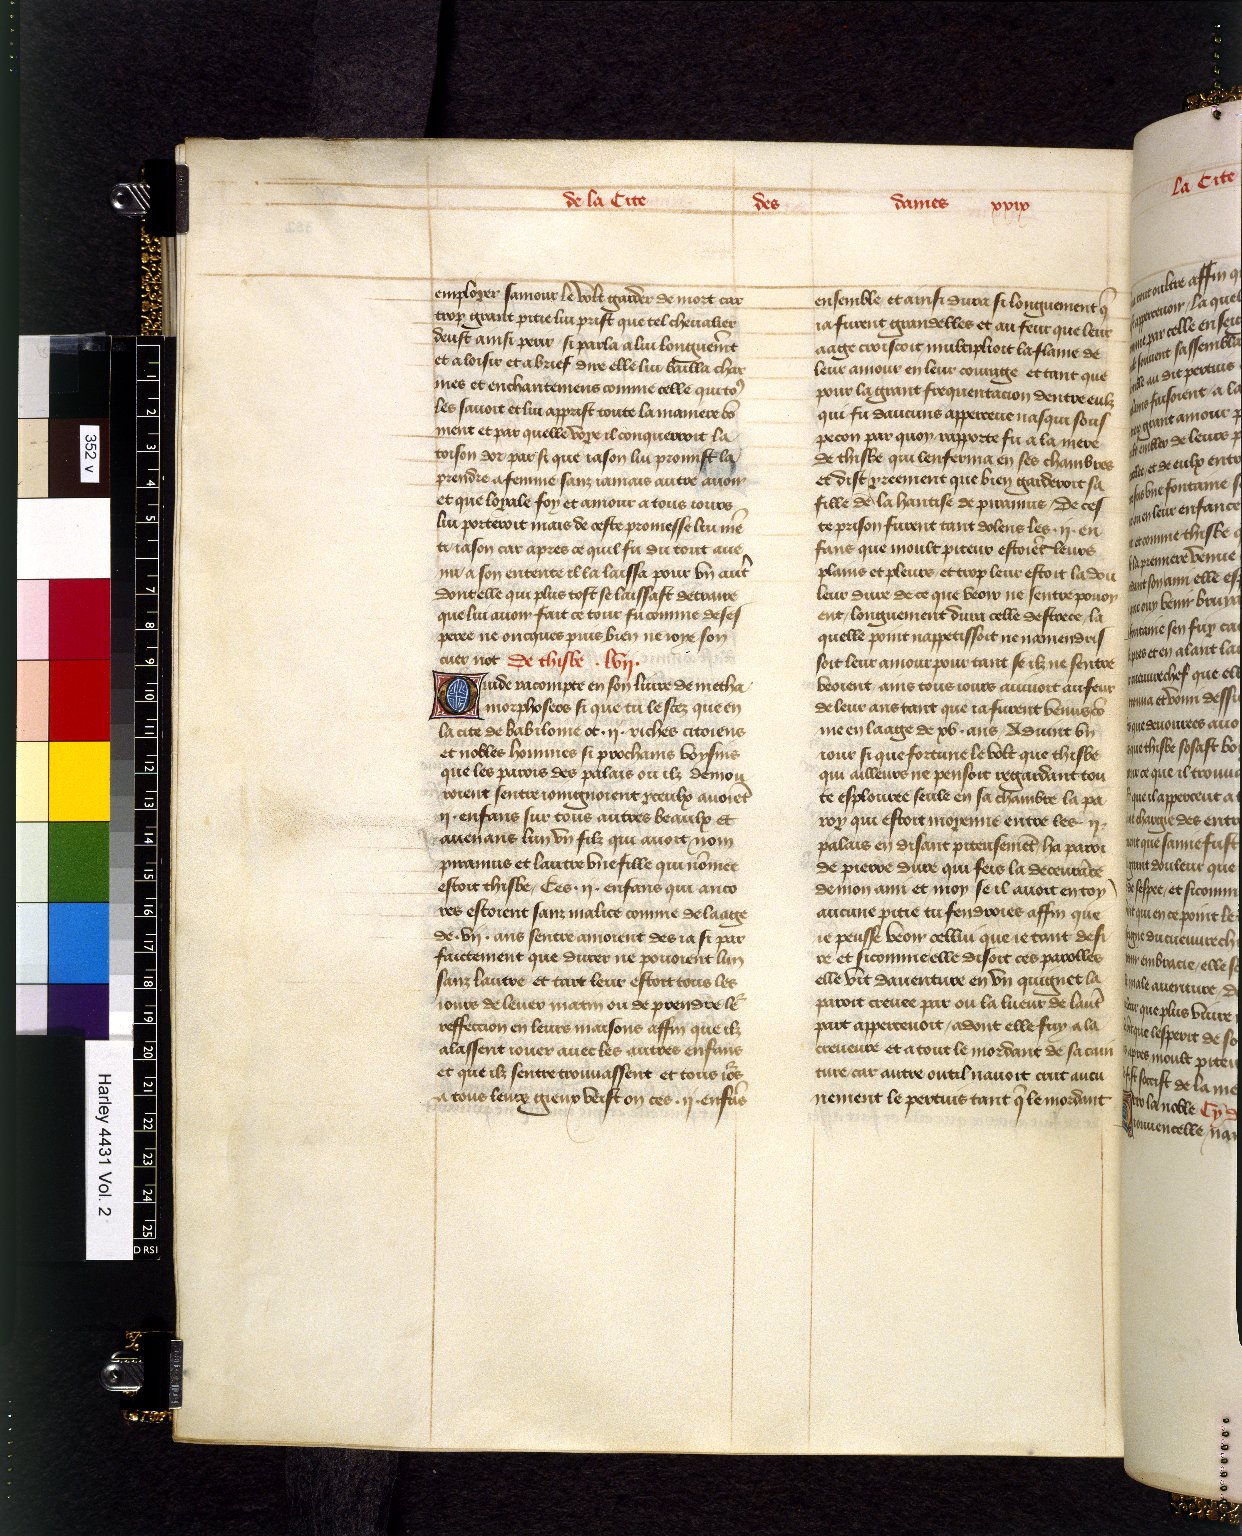 de la Cite des dames xxix
employer samour le volt garder de mort car
trop grant pitie lui prist que tel chevalier
deust ainsi perir si parla a lui longuemēt
et a loisir et a brief dire elle lui bailla char
mes et enchantemens comme celle qui to9
les savoit et lui apprist toute la maniere cō
ment et par quelle voye il conquerroit la
toison dor par si que iason lui promist la
prendre a femme sanz iamais autre avoir
et que loyale foy et amour a tous iours
lui porteroit mais de ceste promesse lui mē
ti iason car apres ce quil fu du tout ave
nu a son entente il la laissa pour vn autr̄
dont elle qui plus tost se laissast detraire
que lui avoir fait ce tour fu comme deses
peree ne oncques puis bien ne ioye son
cuer not De thisbe . lvii.
Ouide racompte en son livre de metha
morphoseos si que tu le scez que en
la cite de babilonie ot .ii. riches citoiens
et nobles hommes si prochains voysins
que les parois des palais ou ilz demou
roient sentre ioingnoient yceulx avoiēt
ii. enfans sur tous autres beaulx et
avenans lun vn filz qui avoit nom
piramus et lautre vne fille qui nōmee
estoit thisbe / Ces .ii. enfans qui anco
res estoient sanz malice comme de laage
de .vii. ans sentre amoient des ia si par
faictement que durer ne povoient lun
sanz lautre et tart leur estoit tous les
iours de lever matin ou de prendre le2
reffection en leurs maisons affin que ilz
alassent iouer avec les autres enfans
et que ilz sentre trouvassent et tous io2s
a tous leurs gieux veist on ces .ii. enfās
ensemble et ainsi dura si longuement q̄
ia furent grandelles et au feur que leur
aage croiscoit multiplioit la flame de
leur amour en leur courage et tant que
pour la grant frequentacion dentre eulz
qui fu daucuns apperceue nasqui sous
pecon par quoy rapporte fu a la mere
de thisbe qui lenferma en ses chambres
et dist yreement que bien garderoit sa
fille de la hantise de piramus / De ces
te prison furent tant dolens les .ii. en
fans que moult piteux estoiēt leurs
plains et pleurs et trop leur estoit la dou
leur dure de ce que veoir ne sentre povoy
ent / longuement dura celle destrece la
quelle point nappetissoit ne namendris
soit leur amour pour tant se ilz ne sentre
veoient ains tous iours avivoit au feur
de leur ans tant que ia furent venus cō
me en laage de xv. ans / Advint vn
iour si que fortune le volt que thisbe
qui ailleurs ne pensoit regardant tou
te esplouree seule en sa chambre la pa
roy qui estoit moyenne entre les .ii.
palais en disant piteusemēt ha paroi
de pierre dure qui feis la decevrāce
de mon ami et moy se il avoit en toy
aucune pitie tu fendroies affin que
ie peusse veoir cellui que ie tant desi
re et si comme elle disoit ces parolles
elle vit daventure en vn quignet la
paroit crevee par ou la lueur de lautr̄
part appercevoit / adont elle fuy a la
creveure et a tout le mordant de sa cain
ture car autre outil navoit crut aucu
nement le pertuis tant q̄ le mordant
la Cite
352 v
Harley 4431 Vol. 2
1
2
3
4
5
7
8
9
10
11
12
13
14
15
16
17
18
19
20
21
22
23
24
25
D RSI